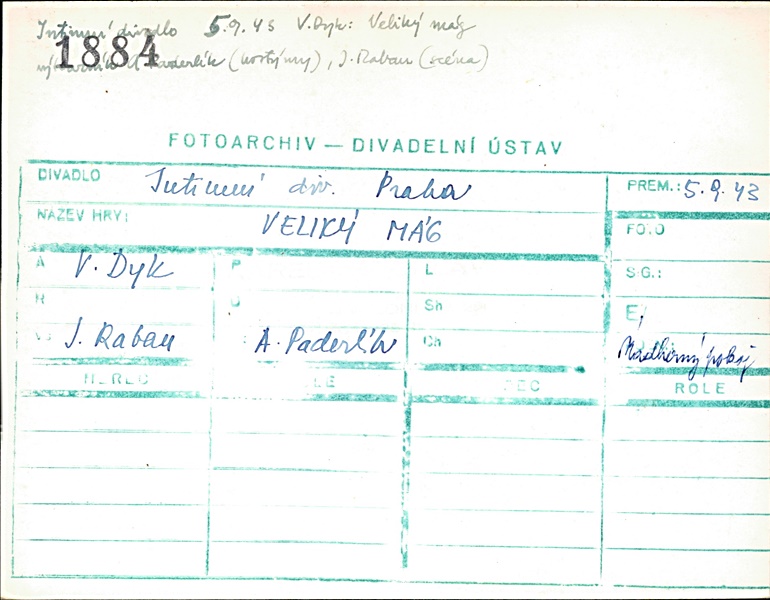 Intimní divadlo 5.9.43 V. Dyk: Veliký mág
1884
výtvarník A Paderlík (kostýmy), J. Raban (scéna)
FOTOARCHIV — DIVADELNÍ ÚSTAV
DIVADLO Intimní div. Praha PREM.: 5.9.43
NÁZEV HRY: VELIKÝ MÁG FOTO
A V. Dyk P L SG.:
R Sh E
J. Raban A. Paderlík Ch Nádherný pokoj
HEREC ROLE